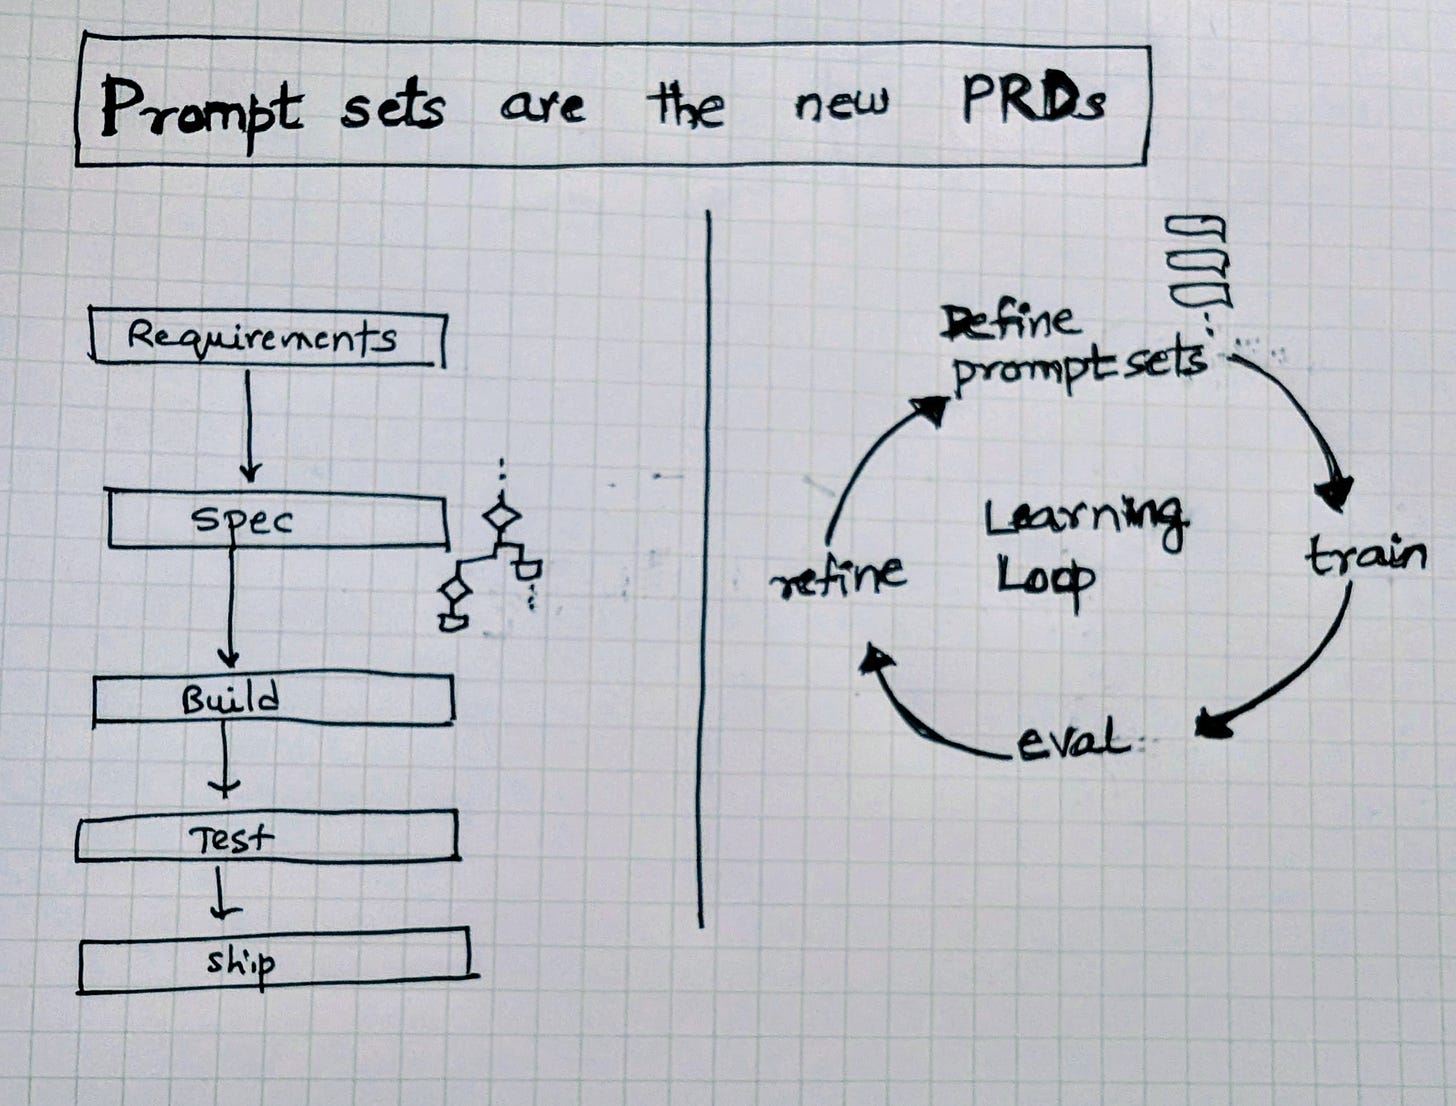 Prompt sets are the new PRDs
Requirements
Spec
Build
Test
Ship
Define
prompt sets
train
eval
refine
Learning
Loop